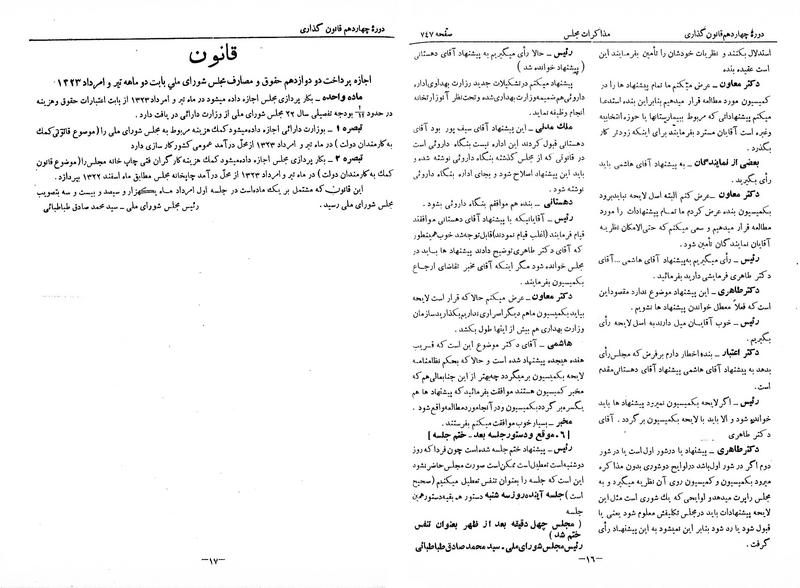 دورهٔ چهاردهم قانون گذاری
مذاکرات مجلس
صفحه ۷۴۷
استدلال بکنند و نظریات خودشان را تأمین بفرمایند این
است عقیده بنده
دکتر معاون ـ عرض میکنم ما تمام پیشنهاد ها را در
کمیسیون مورد مطالعه قرار میدهیم بنابراین بنده استدعا
میکنم پیشنهاداتی که مربوط ببیمارستانها یا حوزه انتخابیه
وغیره است آقایان مسترد بفرمایند برای اینکه زودتر کار
بگذرد .
بعضی از نمایندگان ـ به پیشنهاد آقای هاشمی باید
رأی بگیرید .
دکتر معاون ـ عرض کنم البته اصل لایحه نبایدبرود
بکمیسیون بنده عرض کردم ما تمام پیشنهادات را مورد
مطالعه قرار میدهیم و سعی میکنم که حتی‌الامکان نظریه
آقایان نمایندگان تأمین شود .
رئیس ـ رأی میگیریم به‌پیشنهاد آقای هاشمی ...آقای
دکتر طاهری فرمایشی دارید بفرمائید .
دکتر طاهری ـ این پیشنهاد موضوع ندارد مقصوداین
است که فعلاً معطل خواندن پیشنهاد ها نشویم .
رئیس ـ خوب آقایان میل دارندبه اصل لایحه رأی
بگیریم .
دکتر اعتبار ـ بنده اخطار دارم برفرض که مجلس‌رأی
بدهد به پیشنهاد آقای هاشمی پیشنهاد آقای دهستانی مقدم
است .
رئیس ـ اگر لایحه بکمیسیون نمیرد پیشنهاد ها باید
خوانده شود و الا باید با لایحه بکمیسیون بر گردد .
دکتر طاهری
دکتر طاهری ـ پیشنهاد یا دردشور اول است یا در شور
دوم اگر در شور اول‌باشد درلوایح دوشوری بدون مذاکره
میرود بکمیسیون و کمیسیون روی آن نظریه میگیرد و به
مجلس راپرت میدهدو لوایحی که یك شوری است مثل این
لایحه پیشنهادات باید درمجلس تکلیفش معلوم شود یعنی یا
قبول شود یا رد شود بنابر این نمیشود به این پیشنهاد رأی
گرفت .
رئیس ـ حالا رأی میگیریم به پیشنهاد آقای دهستانی
( پیشنهاد خوانده شد )
پیشنهاد میکنم درتشکیلات جدید وزارت بهداری‌اداره
داروئی‌هم ضمیمه وزارت بهداری‌شده وتحت‌نظر آنوزارتخانه
انجام وظیفه نماید .
ملك مدنی ـ این پیشنهاد آقای سیف پور بود آقای
دهستانی قبول کردند این اداره نیست بنگاه داروئی است
در قانونی که از مجلس گذشته بنگاه داروئی نوشته شده و
باید این پیشنهاد اصلاح شود و بجای اداره بنگاه داروئی
نوشته شود .
دهستانی ـ بنده هم موافقم بنگاه داروئی بشود .
رئیس ـ آقایانیکه با پیشنهاد آقای دهستانی موافقند
قیام فرمایند (اغلب قیام نمودند)قابل‌توجه‌شد خوب‌همینطور
که آقای دکتر طاهری‌توضیح دادند پیشنهاد ها باید در
مجلس خوانده شود مگر اینکه آقای مخبر تقاضای ارجاع
بکمیسیون بفرمایند .
دکتر معاون ـ عرض میکنم حالاکه قرار است لایحه
بیاید بکمیسیون ماهم دیگر اصراری نداریم‌بگذاریدسازمان
وزارت بهداری هم بیش از اینها طول بکشد .
هاشمی ـ آقای دکتر موضوع این است که قسریب
هفده هیجده پیشنهاد شده است و حالا که بحکم نظامنامه
لایحه بکمیسیون برمیگردد چه‌بهتر از این جنابعالی‌هم که
مخبر کمیسیون هستند موافقت بفرمائید که پیشنهاد ها هم
یکسره بر گردد بکمیسیون ودرآنجامورد‌مطالعه‌واقع‌شود .
مخبر ـ بسیار خوب موافقت میکنم بفرستند .
[ ۶ ـ موقع و دستور جلسه بعد ـ ختم جلسه ]
رئیس ـ پیشنهاد ختم جلسه شده‌است چون فردا‌که روز
دوشنبه‌است تعطیل‌است ممکن‌است صورت مجلس حاضر نشود
این است که جلسه را بعنوان تنفس تعطیل میکنیم (صحیح
است ) جلسه آینده روز سه شنبه دستور هم بقیه دستور‌همین
جلسه
( مجلس چهل دقیقه بعد از ظهر بعنوان تنفس
ختم شد )
رئیس مجلس شورای ملی ـ سید محمد صادق طباطبائی
ـ۱۶ـ
دورهٔ چهاردهم قانون گذاری
قانون
اجازه پرداخت دو دوازدهم حقوق و مصارف مجلس شورای ملی بابت دو ماهه تیر و امرداد ۱۳۲۳
ماده واحده ـ بکار پردازی مجلس اجازه داده میشود در ماه تیر و امرداد ۱۳۲۳ از بابت اعتبارات حقوق وهزینه
در حدود ۲/۱۲ بودجه تفصیلی سال ۲۲ مجلس شورای ملی از وزارت دارائی دریافت دارد .
تبصره ۱ ـ بوزارت دارائی اجازه داده‌میشود کمك هزینه مربوط به مجلس شورای ملی را (موضوع قانونی کمك
به کارمندان دولت ) در ماه تیر و امرداد ۱۳۲۳ ازمحل درآمد عمومی کشور کارسازی دارد
تبصره ۲ ـ بکار پردازی مجلس اجازه داده‌میشود کمك هزینه کارگران فنی چاپ خانه مجلس‌را (موضوع قانون
کمك به‌کارمندان دولت ) در ماه تیر و امرداد ۱۳۲۳ از محل درآمد چاپخانه مجلس مطابق ماه اسفند ۱۳۲۲ بپردازد .
این قانون که مشتمل بر یك ماده‌است در جلسه اول امرداد ماه یکهزار و سیصد و بیست و سه بتصویب
مجلس شورای ملی رسید .
رئیس مجلس شورای ملی ـ سید محمد صادق طباطبائی
ـ۱۷ـ